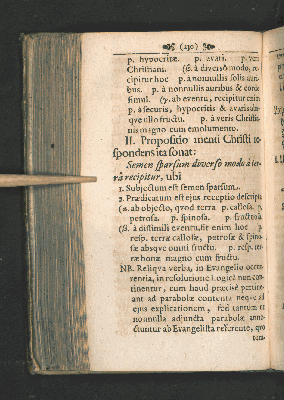 (230)
p. hypocritæ. p. avari. p. veri
Christiani. (ß. à diversô modo, re-
cipitur hoc p. à nonnullis solis auri-
bus. p. à nonnullis auribus & corde
simul. (γ. ab eventu, recipitur enim
p. à securis, hypocritis & avaris abs-
que ullo fructu. p. à veris Christia-
nis magno cum emolumento.
II. Propositio menti Christi re-
spondens ita sonat:
Semen sparsum diverso modo à ter-
râ recipitur, ubi
1. Subjectum est semen sparsum.
2. Prædicatum est ejus receptio descripta
(α. ab objecto, quod terra p. callosa. p.
petrosa. p. spinosa. p. fructuosa
(ß. à dissimili eventu, fit enim hoc p.
resp. terræ callosæ, petrosæ & spino-
sæ absque omni fructu. p. resp. ter-
ræ bonæ magno cum fructu.
NB. Reliqua verba, in Evangelio occur-
rentia, in resolutione Logicâ non con-
tinentur, cum haud præcisè pertine-
ant ad parabolæ contenta neque ad
ejus explicationem, sed tantum ut
nonnulla adjuncta parabolæ anne-
ctuntur ab Evangelista referente, quo